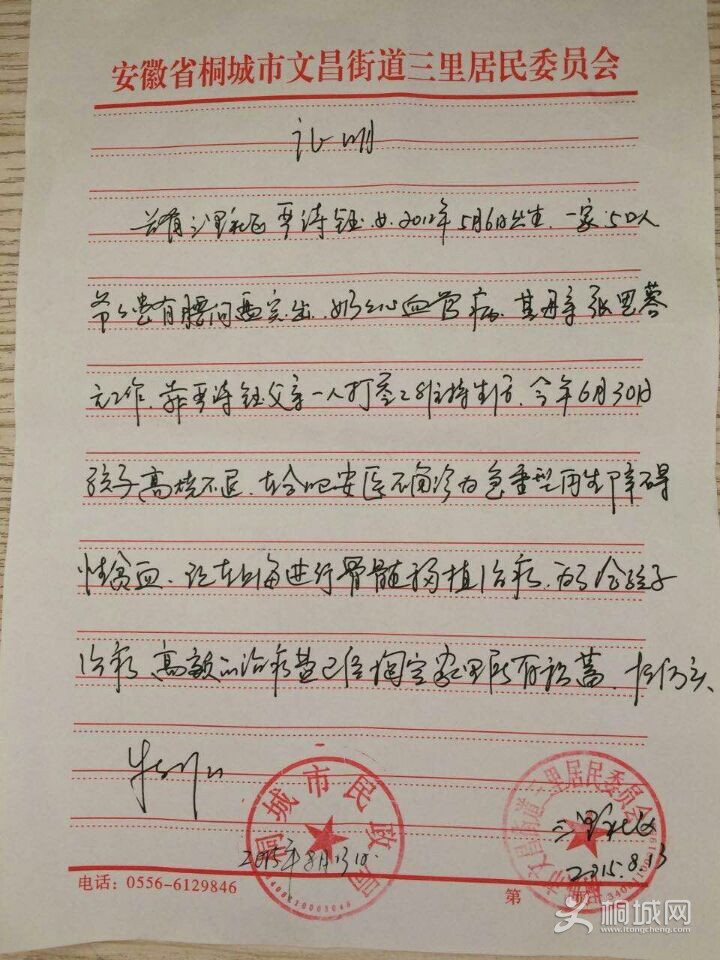 安徽省桐城市文昌街道三里居民委员会
证明
兹有三里社区严诗钰,女,2012年5月6日出生,一家5口人
爷爷患有腰间盘突出,奶奶心血管病,其母亲张里蓉
无工作,靠严诗钰父亲一人打零工维持生活,今年6月30日
孩子高烧不退,在合肥安医确诊为急重型再生障碍
性贫血,现在上海进行骨髓移植治疗,为了给孩子
治病,高额的治疗费已经掏空家里所有积蓄,情况属实、
桐城市民政局
3408810005048
2015年8月13日
文昌街道三里居民委员会
三里社区
2015.8.13
电话:0556-6129846
第
桐城网
www.itongcheng.com